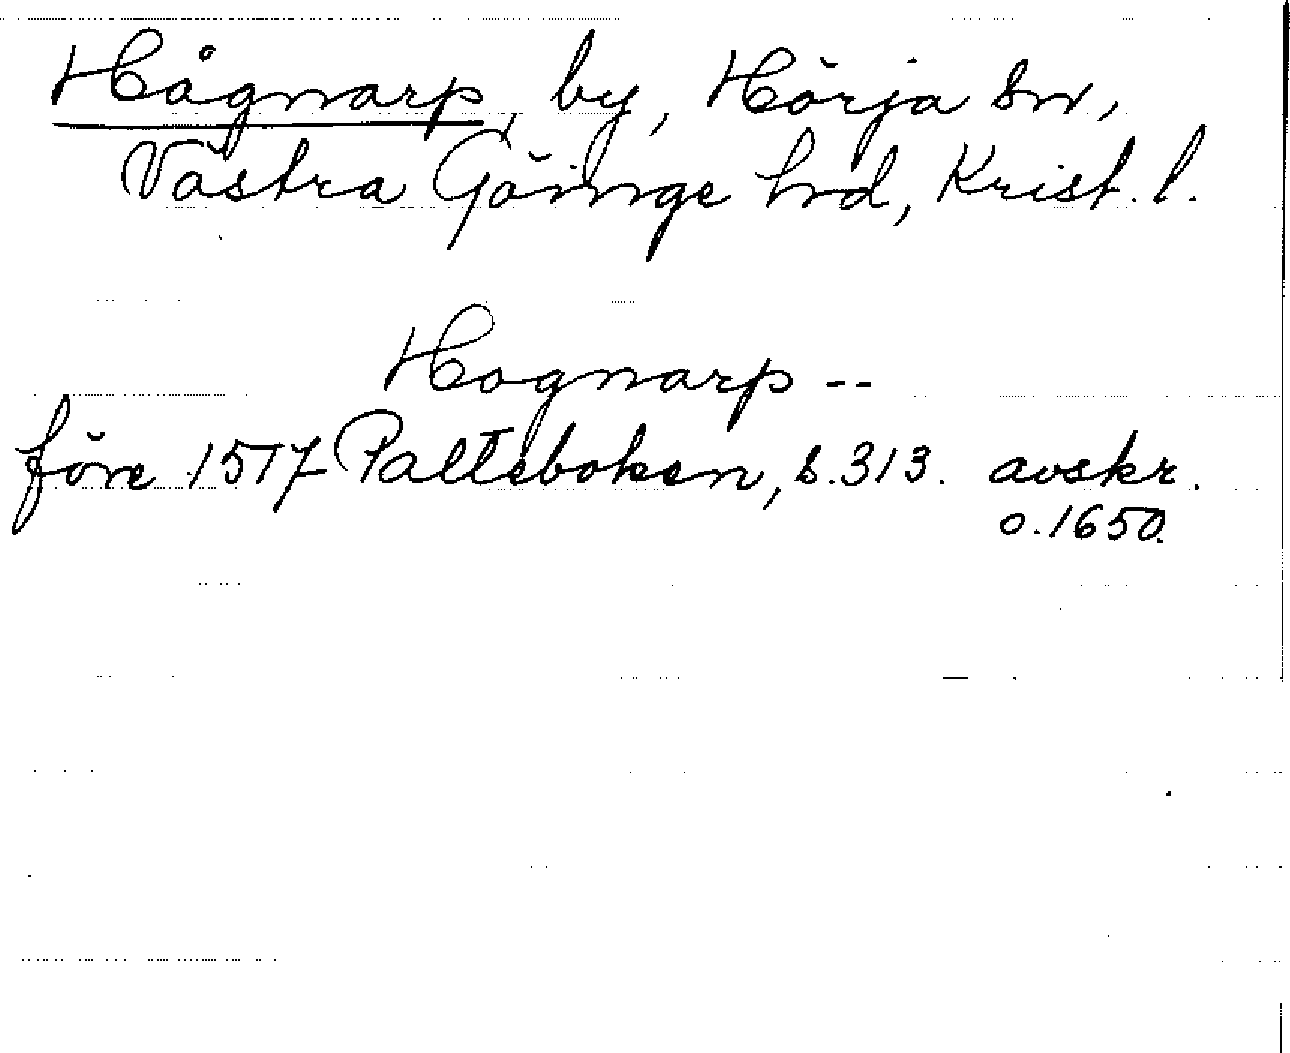 Hågnarp, by, Hörja sn,
Västra Göinge hd, Krist. l.
Hognarp --
före 1517 Palteboken, s. 313. avskr.
o. 1650.